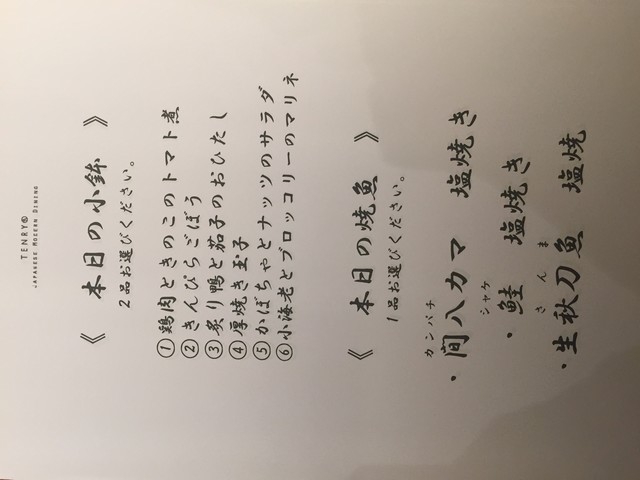 TENRYO
JAPANESE MODERN DINING
《 本日の小鉢 》
2品お選びください。
①鶏肉ときのこのトマト煮
②きんぴらごぼう
③炙り鴨と茄子のおひたし
④厚焼き玉子
⑤かぼちゃとナッツのサラダ
⑥小海老とブロッコリーのマリネ
《 本日の焼魚 》
1品お選びください。
カンパチ
・間八カマ 塩焼き
シャケ
・鮭 塩焼き
さんま
・生秋刀魚 塩焼